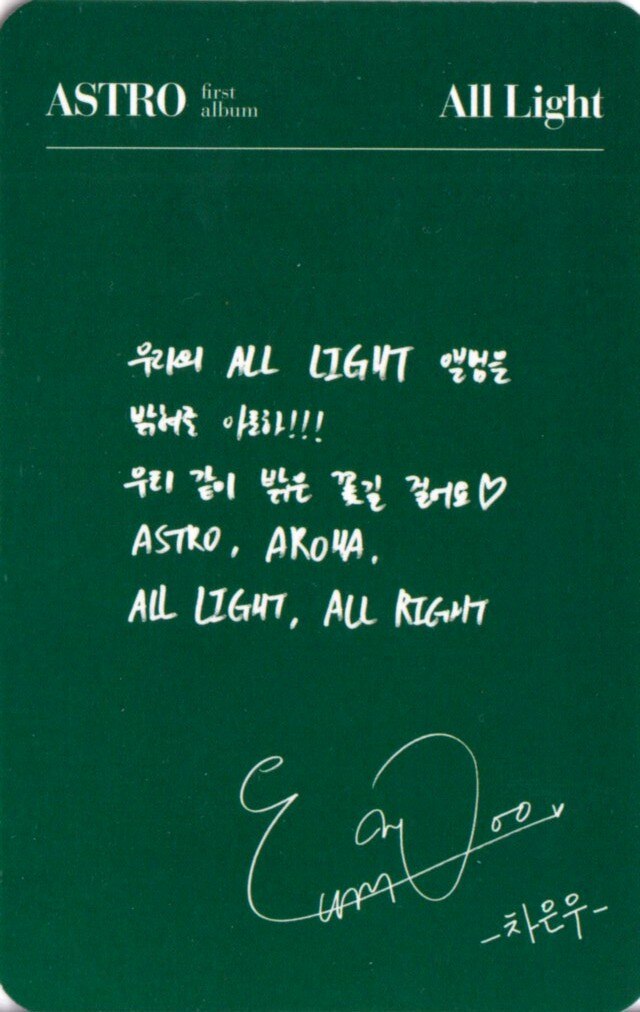 ASTRO first album All Light
우리의 ALL LIGHT 앨범을
밝혀줄 아로하!!!
우리 같이 밝은 꽃길 걸어요♡
ASTRO, AROHA,
ALL LIGHT, ALL RIGHT
-차은우-